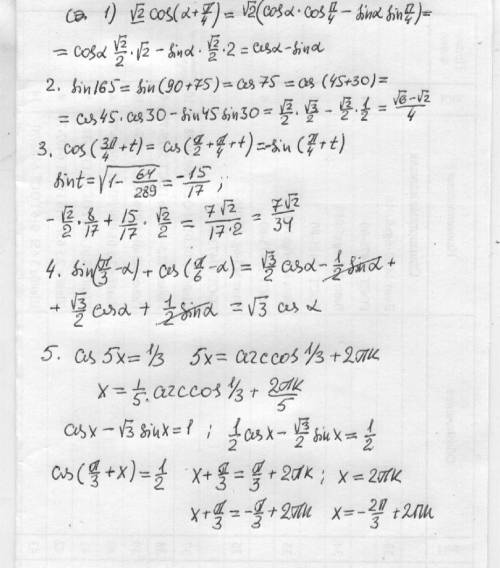 Св. 1) √2 cos(α+π/4) = √2(cosα·cos π/4 − sinα sin π/4) =
= cosα √2/2·√2 − sinα·√2/2·2 = cosα − sinα
2. sin165 = sin(90+75) = cos 75 = cos (45+30) =
= cos45·cos30 − sin45 sin30 = √2/2·√3/2 − √2/2·1/2 = (√6−√2)/4
3. cos(3π/4+t) = cos(π/2+π/4+t) = −sin(π/4+t)
sint = √(1−64/289) = −15/17 ;
−√2/2·8/17 + 15/17·√2/2 = 7√2/(17·2) = 7√2/34
4. sin(π/3−α) + cos(π/6−α) = √3/2 cosα − 1/2 sinα +
+ √3/2 cosα + 1/2 sinα = √3 cosα
5. cos 5x = 1/3 5x = arccos 1/3 + 2πk
x = 1/5·arccos 1/3 + 2πk/5
cosx − √3 sinx = 1 ; 1/2 cosx − √3/2 sinx = 1/2
cos(π/3+x) = 1/2 x+π/3 = π/3 + 2πk ; x = 2πk
x+π/3 = −π/3 + 2πk x = −2π/3 + 2πk